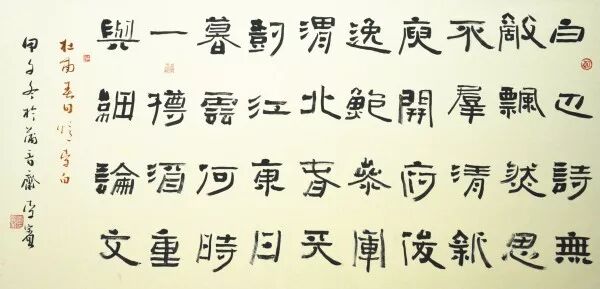 白也詩無
敵飄然思
不羣清新
庾開府俊
逸鮑參軍
渭北春天
樹江東日
暮雲何時
一樽酒重
與細論文
杜甫春日憶李白
甲午冬於齋